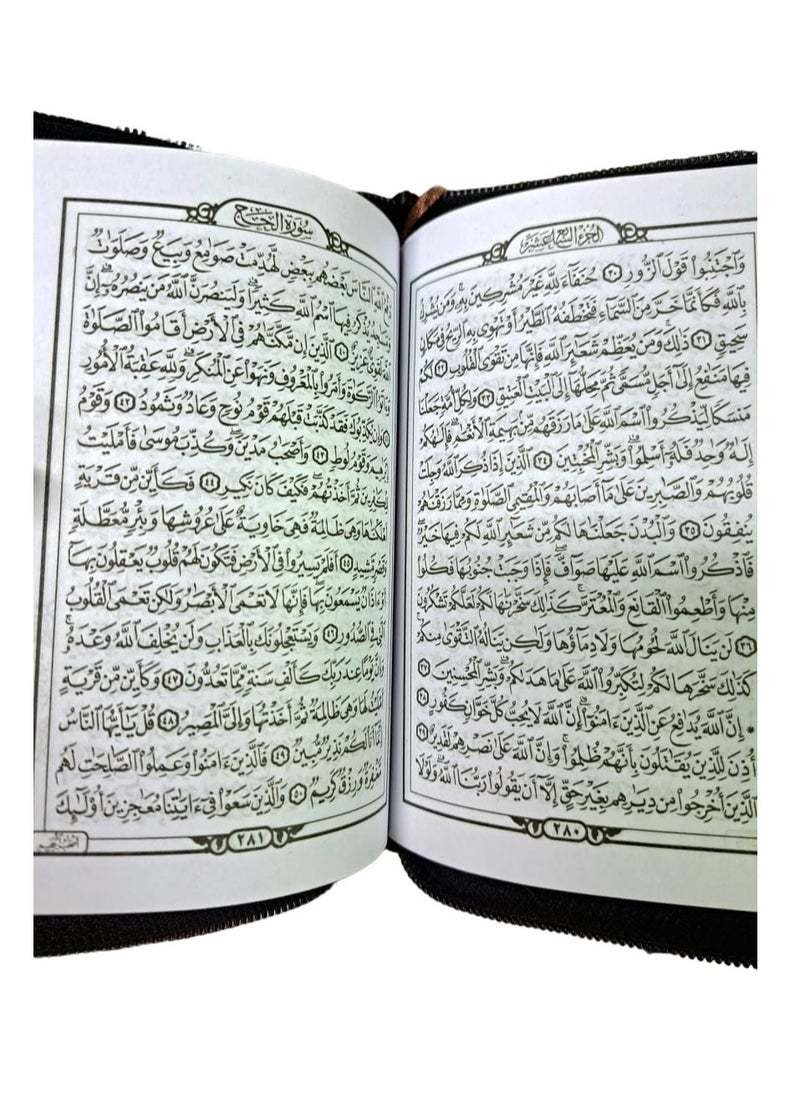 الجزء السابع عشر
وَٱجْتَنِبُوا۟ قَوْلَ ٱلزُّورِ ٣٠ حُنَفَآءَ لِلَّهِ غَيْرَ مُشْرِكِينَ بِهِۦ وَمَن يُشْرِكْ
بِٱللَّهِ فَكَأَنَّمَا خَرَّ مِنَ ٱلسَّمَآءِ فَتَخْطَفُهُ ٱلطَّيْرُ أَوْ تَهْوِى بِهِ ٱلرِّيحُ فِى مَكَانٍ
سَحِيقٍ ٣١ ذَٰلِكَ وَمَن يُعَظِّمْ شَعَٰٓئِرَ ٱللَّهِ فَإِنَّهَا مِن تَقْوَى ٱلْقُلُوبِ ٣٢ لَكُمْ
فِيهَا مَنَٰفِعُ إِلَىٰٓ أَجَلٍ مُّسَمًّى ثُمَّ مَحِلُّهَآ إِلَى ٱلْبَيْتِ ٱلْعَتِيقِ ٣٣ وَلِكُلِّ أُمَّةٍ جَعَلْنَا
مَنسَكًا لِّيَذْكُرُوا۟ ٱسْمَ ٱللَّهِ عَلَىٰ مَا رَزَقَهُم مِّنۢ بَهِيمَةِ ٱلْأَنْعَٰمِ فَإِلَٰهُكُمْ
إِلَٰهٌ وَٰحِدٌ فَلَهُۥٓ أَسْلِمُوا۟ وَبَشِّرِ ٱلْمُخْبِتِينَ ٣٤ ٱلَّذِينَ إِذَا ذُكِرَ ٱللَّهُ وَجِلَتْ
قُلُوبُهُمْ وَٱلصَّٰبِرِينَ عَلَىٰ مَآ أَصَابَهُمْ وَٱلْمُقِيمِى ٱلصَّلَوٰةِ وَمِمَّا رَزَقْنَٰهُمْ
يُنفِقُونَ ٣٥ وَٱلْبُدْنَ جَعَلْنَٰهَا لَكُم مِّن شَعَٰٓئِرِ ٱللَّهِ لَكُمْ فِيهَا خَيْرٌ
فَٱذْكُرُوا۟ ٱسْمَ ٱللَّهِ عَلَيْهَا صَوَآفَّ فَإِذَا وَجَبَتْ جُنُوبُهَا فَكُلُوا۟
مِنْهَا وَأَطْعِمُوا۟ ٱلْقَانِعَ وَٱلْمُعْتَرَّ كَذَٰلِكَ سَخَّرْنَٰهَا لَكُمْ لَعَلَّكُمْ تَشْكُرُونَ
٣٦ لَن يَنَالَ ٱللَّهَ لُحُومُهَا وَلَا دِمَآؤُهَا وَلَٰكِن يَنَالُهُ ٱلتَّقْوَىٰ مِنكُمْ
كَذَٰلِكَ سَخَّرَهَا لَكُمْ لِتُكَبِّرُوا۟ ٱللَّهَ عَلَىٰ مَا هَدَىٰكُمْ وَبَشِّرِ ٱلْمُحْسِنِينَ ٣٧
* إِنَّ ٱللَّهَ يُدَٰفِعُ عَنِ ٱلَّذِينَ ءَامَنُوٓا۟ إِنَّ ٱللَّهَ لَا يُحِبُّ كُلَّ خَوَّانٍ كَفُورٍ ٣٨
أُذِنَ لِلَّذِينَ يُقَٰتَلُونَ بِأَنَّهُمْ ظُلِمُوا۟ وَإِنَّ ٱللَّهَ عَلَىٰ نَصْرِهِمْ لَقَدِيرٌ ٣٩
ٱلَّذِينَ أُخْرِجُوا۟ مِن دِيَٰرِهِم بِغَيْرِ حَقٍّ إِلَّآ أَن يَقُولُوا۟ رَبُّنَا ٱللَّهُ وَلَوْلَا
٢٨٠
سورة الحج
ٱللَّهِ ٱلنَّاسَ بَعْضَهُم بِبَعْضٍ لَّهُدِّمَتْ صَوَٰمِعُ وَبِيَعٌ وَصَلَوَٰتٌ
يُذْكَرُ فِيهَا ٱسْمُ ٱللَّهِ كَثِيرًا وَلَيَنصُرَنَّ ٱللَّهُ مَن يَنصُرُهُۥٓ إِنَّ
لَقَوِىٌّ عَزِيزٌ ٤٠ ٱلَّذِينَ إِن مَّكَّنَّٰهُمْ فِى ٱلْأَرْضِ أَقَامُوا۟ ٱلصَّلَوٰةَ
وَءَاتَوُا۟ ٱلزَّكَوٰةَ وَأَمَرُوا۟ بِٱلْمَعْرُوفِ وَنَهَوْا۟ عَنِ ٱلْمُنكَرِ وَلِلَّهِ عَٰقِبَةُ ٱلْأُمُورِ
وَإِن يُكَذِّبُوكَ فَقَدْ كَذَّبَتْ قَبْلَهُمْ قَوْمُ نُوحٍ وَعَادٌ وَثَمُودُ ٤٢ وَقَوْمُ
وَقَوْمُ لُوطٍ ٤٣ وَأَصْحَٰبُ مَدْيَنَ وَكُذِّبَ مُوسَىٰ فَأَمْلَيْتُ
ثُمَّ أَخَذْتُهُمْ فَكَيْفَ كَانَ نَكِيرِ ٤٤ فَكَأَيِّن مِّن قَرْيَةٍ
وَهِىَ ظَالِمَةٌ فَهِىَ خَاوِيَةٌ عَلَىٰ عُرُوشِهَا وَبِئْرٍ مُّعَطَّلَةٍ
مَّشِيدٍ ٤٥ أَفَلَمْ يَسِيرُوا۟ فِى ٱلْأَرْضِ فَتَكُونَ لَهُمْ قُلُوبٌ يَعْقِلُونَ بِهَآ
أَوْ ءَاذَانٌ يَسْمَعُونَ بِهَا فَإِنَّهَا لَا تَعْمَى ٱلْأَبْصَٰرُ وَلَٰكِن تَعْمَى ٱلْقُلُوبُ
ٱلَّتِى فِى ٱلصُّدُورِ ٤٦ وَيَسْتَعْجِلُونَكَ بِٱلْعَذَابِ وَلَن يُخْلِفَ ٱللَّهُ وَعْدَهُۥ
وَإِنَّ يَوْمًا عِندَ رَبِّكَ كَأَلْفِ سَنَةٍ مِّمَّا تَعُدُّونَ ٤٧ وَكَأَيِّن مِّن قَرْيَةٍ
أَمْلَيْتُ لَهَا وَهِىَ ظَالِمَةٌ ثُمَّ أَخَذْتُهَا وَإِلَىَّ ٱلْمَصِيرُ ٤٨ قُلْ يَٰٓأَيُّهَا ٱلنَّاسُ
إِنَّمَآ أَنَا۠ لَكُمْ نَذِيرٌ مُّبِينٌ ٤٩ فَٱلَّذِينَ ءَامَنُوا۟ وَعَمِلُوا۟ ٱلصَّٰلِحَٰتِ لَهُم
مَّغْفِرَةٌ وَرِزْقٌ كَرِيمٌ ٥٠ وَٱلَّذِينَ سَعَوْا۟ فِىٓ ءَايَٰتِنَا مُعَٰجِزِينَ أُو۟لَٰٓئِكَ
٢٨١
أصحاب الجحيم